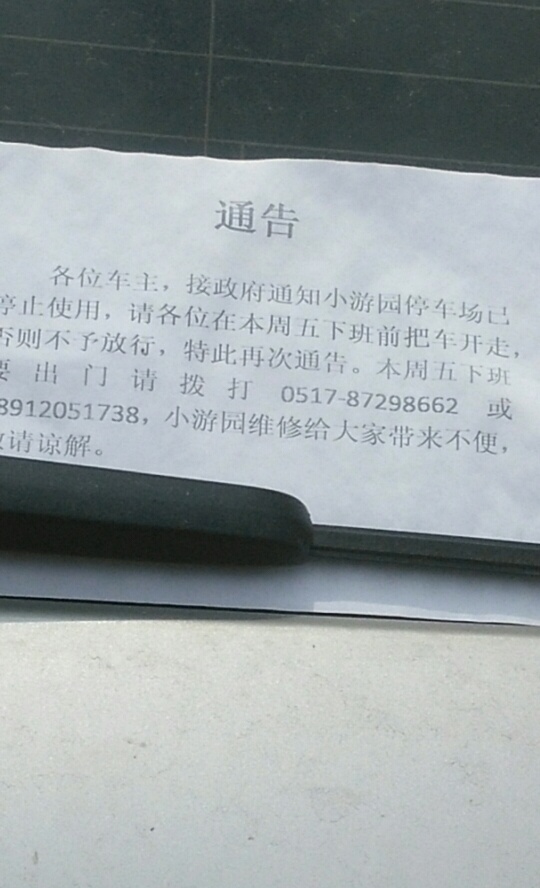 通告
各位车主，接政府通知小游园停车场已
停止使用，请各位在本周五下班前把车开走，
否则不予放行，特此再次通告。本周五下班
要出门请拨打0517-87298662或
8912051738，小游园维修给大家带来不便，
敬请谅解。